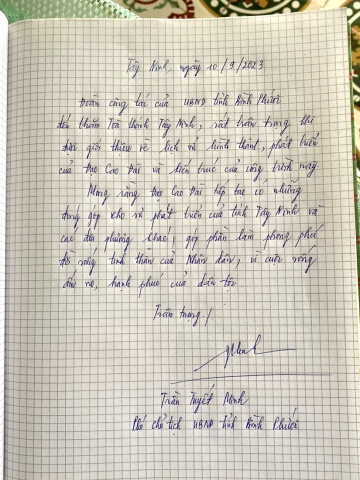 Tây Ninh, ngày 10/9/2023
Đoàn công tác của UBND tỉnh Bình Phước
đến thăm Tòa Thánh Tây Ninh, rất trân trọng khi
được giới thiệu về lịch sử hình thành, phát triển
của Đạo Cao Đài và kiến trúc của công trình này.
Mong rằng Đạo Cao Đài tiếp tục có những
đóng góp cho sự phát triển của tỉnh Tây Ninh và
các địa phương khác, góp phần làm phong phú
đời sống tinh thần của Nhân dân, vì cuộc sống
ấm no, hạnh phúc của dân tộc
Trân trọng /
Trần Tuyết Minh
Phó chủ tịch UBND tỉnh Bình Phước